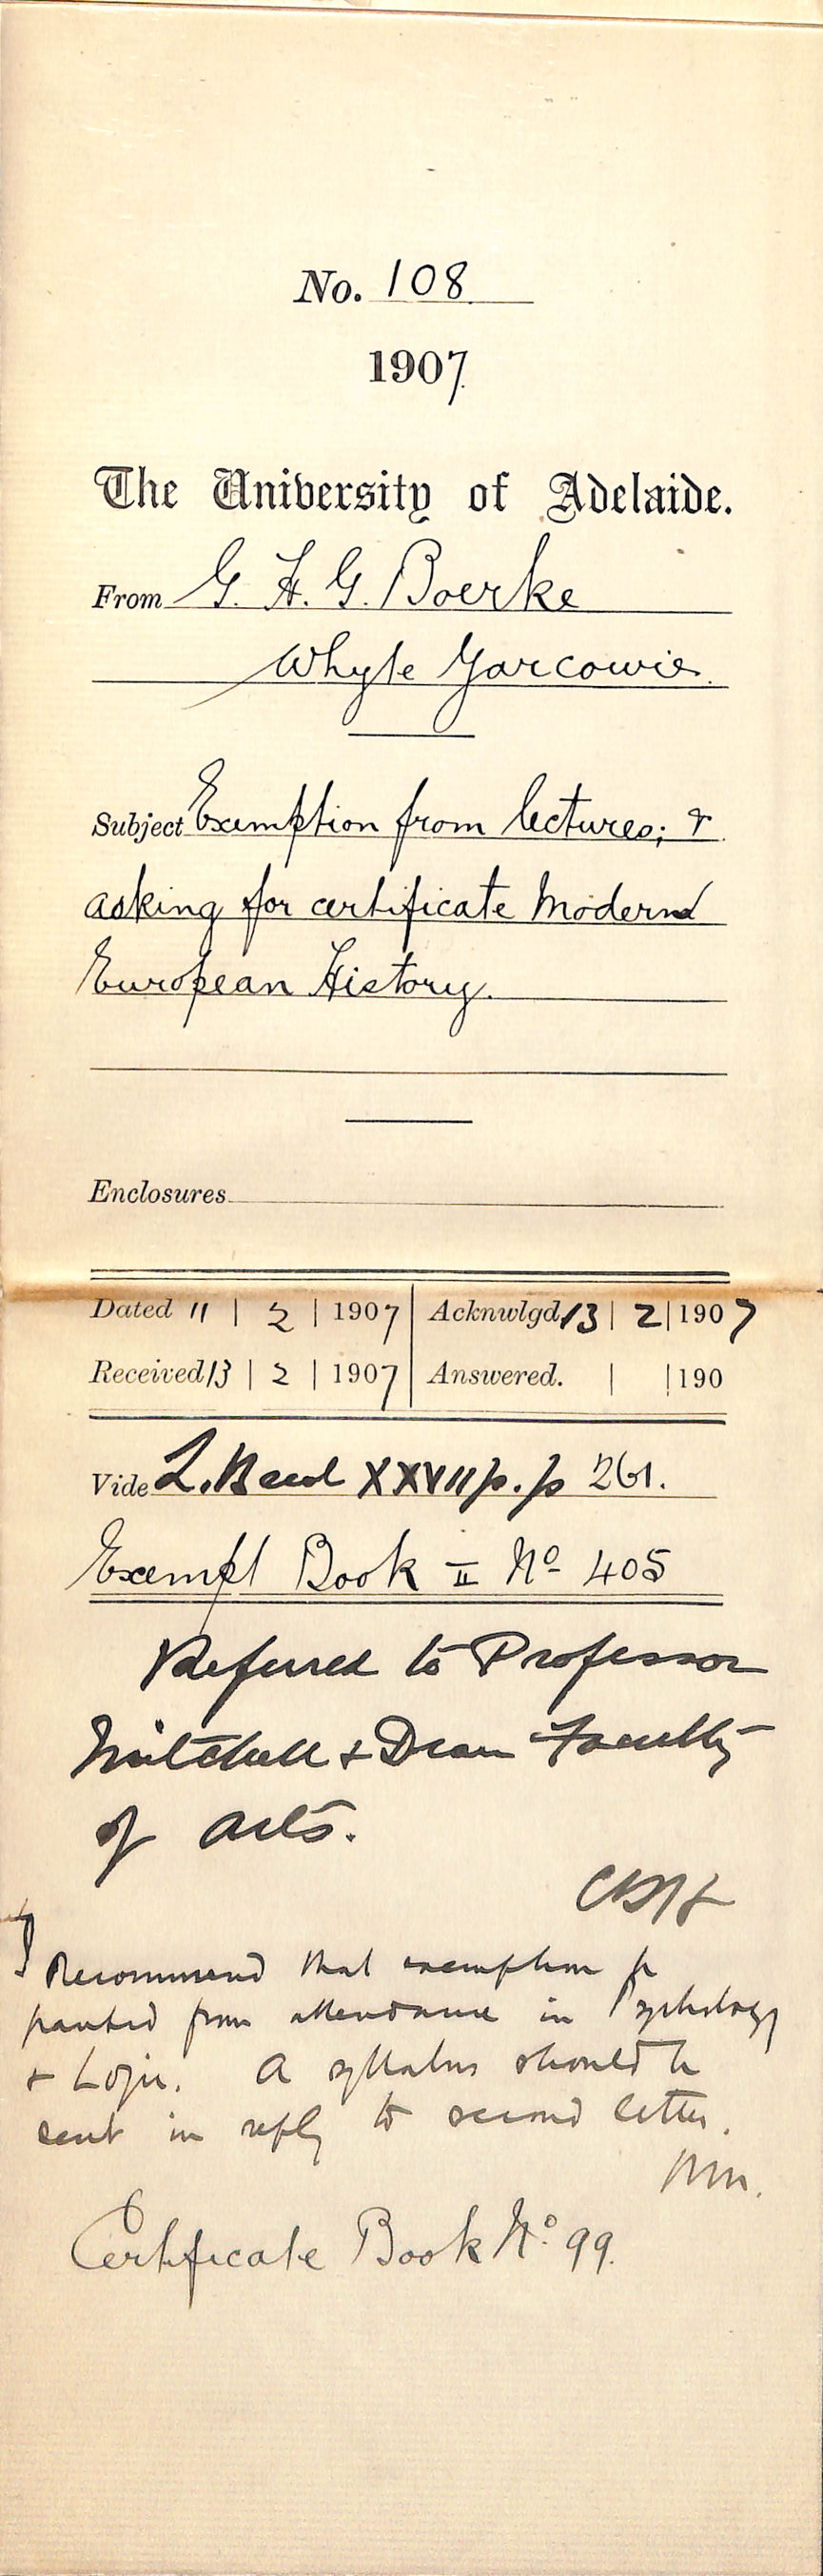 No. 108
1907
The University of Adelaide.
From G. H. G. Boerke
Whyte Yarcowie.
Subject Exemption from lectures; &
asking for certificate Modern
European History.
Enclosures
Dated 11 | 2 | 1907 | Acknwlgd 13 | 2 | 1907
Received 13 | 2 | 1907 | Answered. | | 190
Vide L. XXVII p. 261.
Exempt Book II No 405
Referred to Professor
Mitchell & Dean Faculty
of Arts.
CRH
I Recommend that exemption be
granted from attendance in Psychology
& Logic. A syllabus should be
sent in reply to second letter.
WM.
Certificate Book No. 99.